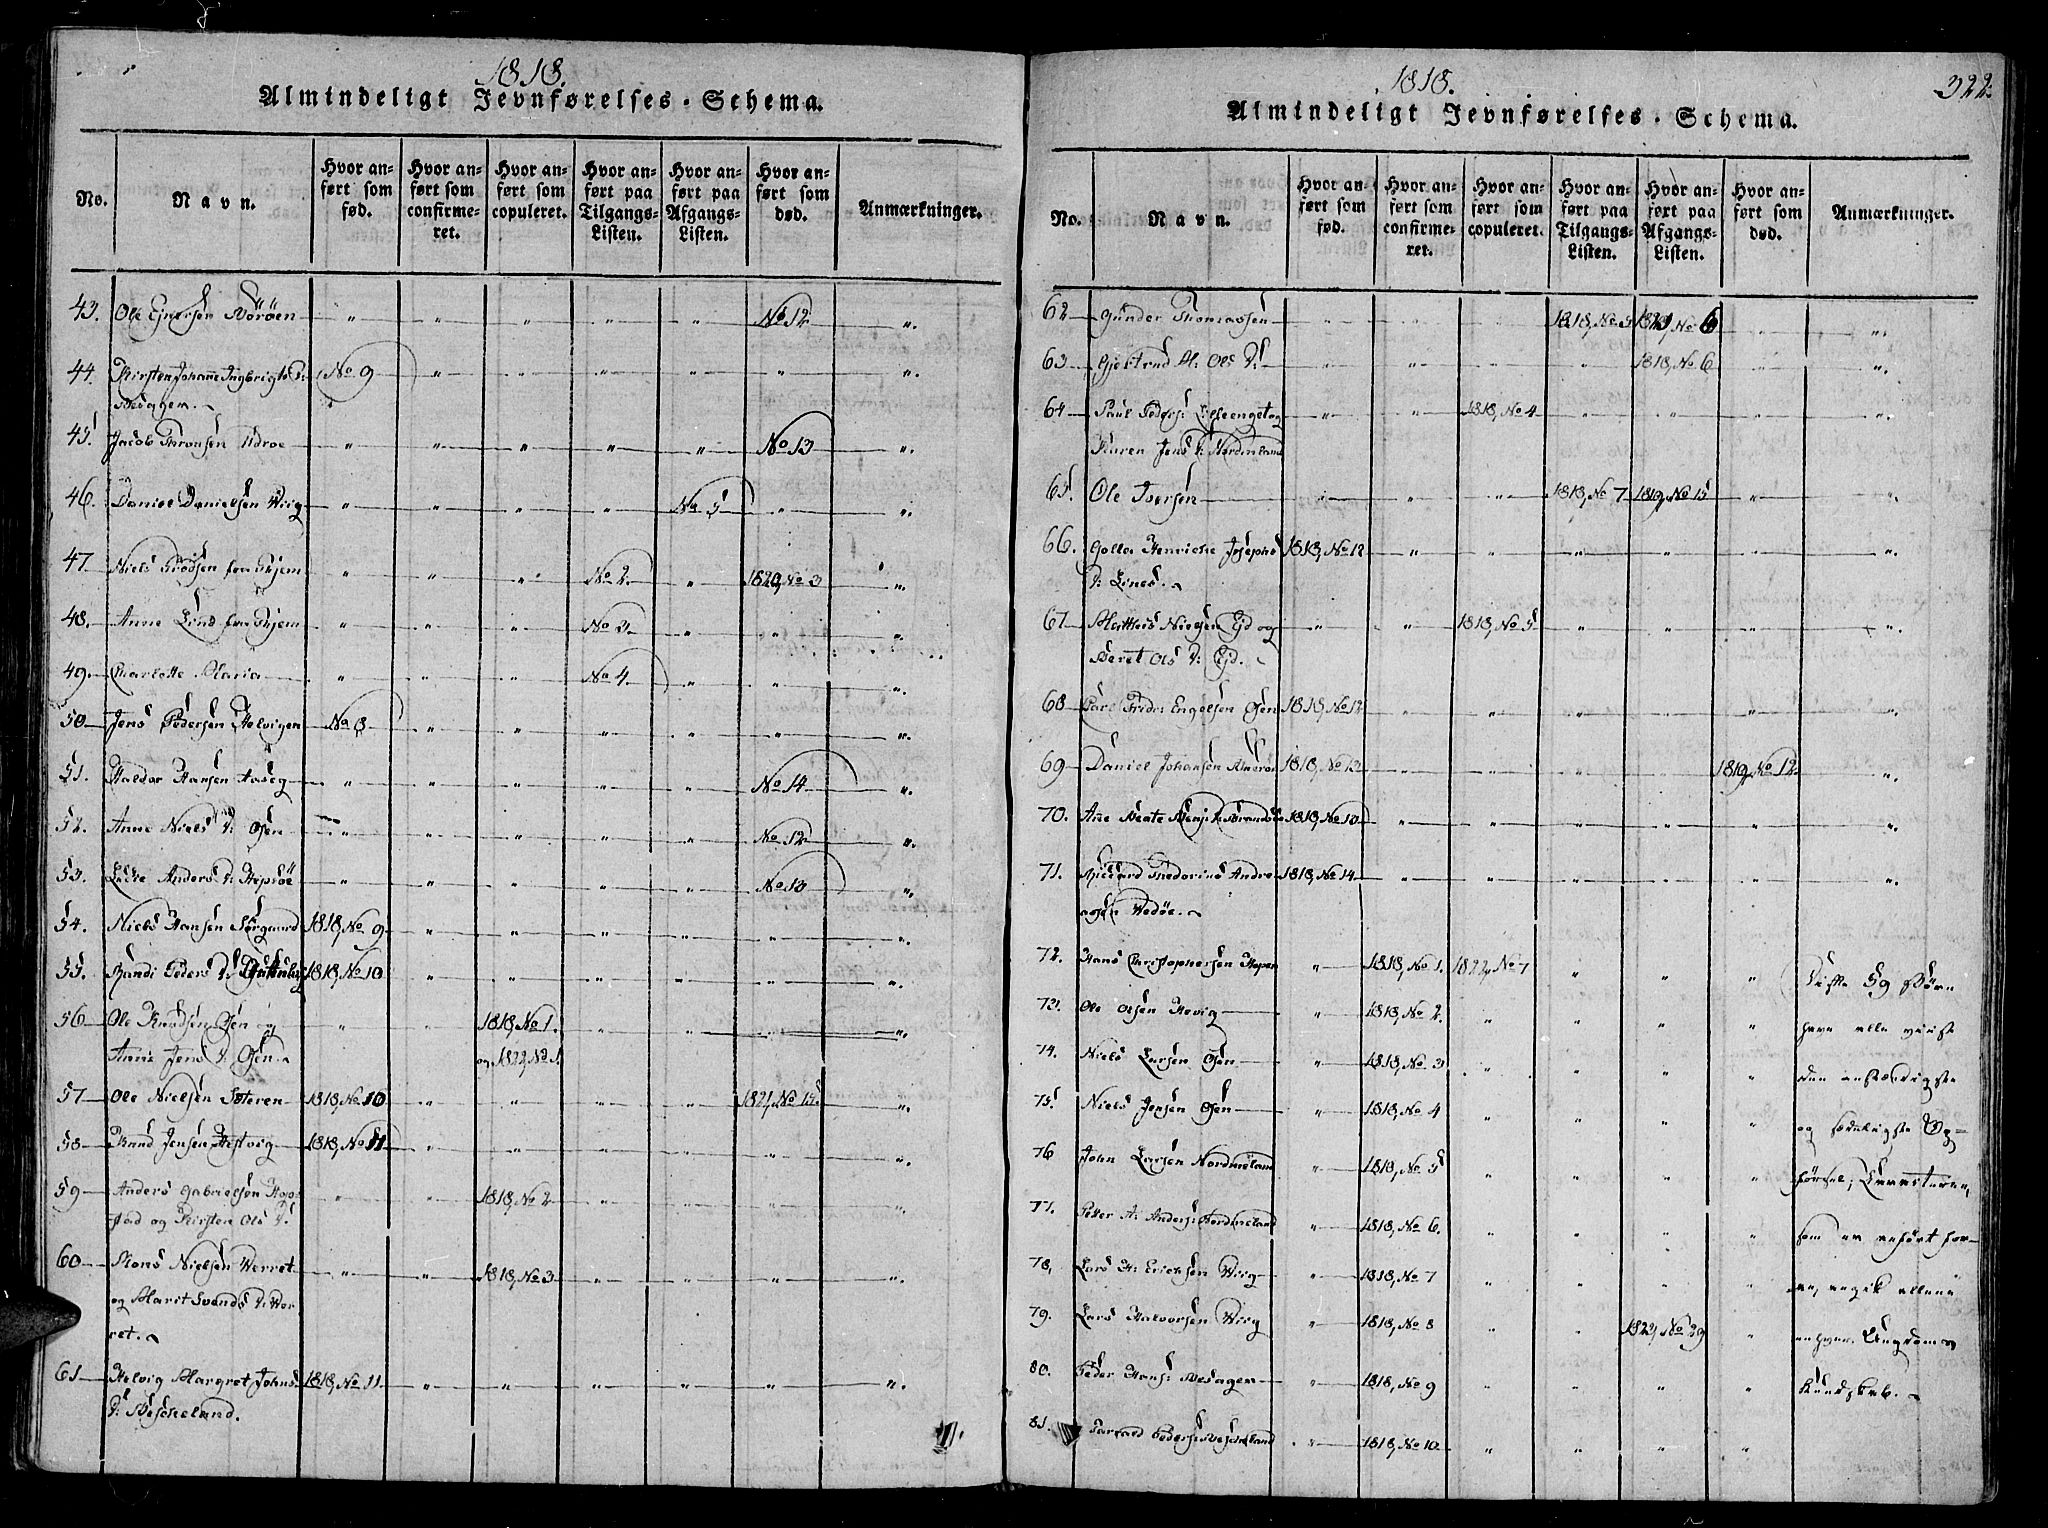 1818.
Almindeligt Jevnførelses-Schema.
No. Navn. Hvor anført som fød. Hvor anført som confirmeret. Hvor anført som copuleret. Hvor anført paa Tilgangs-Listen. Hvor anført paa Afgangs-Listen. Hvor anført som død. Anmærkninger.
43. Ole Ejnersen " " " " " No 12 ".
44. Kirsten Johanne Ingbrigts D: No 9 " " " " " ".
Besagen.
45. Jacob Aronsen " " " " " No 13 ".
46. Daniel Danielsen Wiig " " " " No 5 " ".
47 Niels fra Hjem " " " No 2. " 1820, No 3 "
48. Anne Lind fra Hjem " " " No 3. " " "
49. Charlotte Maria " " " No 4. " " ".
50 Jens Pedersen Helvigen No 8 " " " " " ".
51. Haldor Hansen " " " " " No 14 ".
52. Anne Niels D: Osen " " " " " No 12 ".
53. Anders D: Hepsøe " " " " " No 13 "
54. Niels Hansen Sørgaard 1818, No 9 " " " " " ".
55. Randi Peders D: 1818, No 10 " " " " " ".
56 Ole Knudsen Osen og " " 1818, No 1. " " " ".
Anne Jens D: Osen. og 1822, No 1
57 Ole Nielsen Sæteren 1818, No 10 " " " " 1821, No 15. ".
58 Knud Jensen Hestvig 1818, No 11 " " " " " ".
59 Anders Gabrielsen Hop- " " 1818, No 2 " " " ".
stad og Kirsten Ols D:
60 Mons Nielsen Werret " " 1818, No 3 " " " ".
og Marit Svends D: Wer
ret.
61 Helvig Margret Johns 1818, No 11. " " " " " ".
D: Bescheland.
1818.
322.
Almindeligt Jevnførelses-Schema.
No. Navn. Hvor anført som fød. Hvor anført som confirmeret. Hvor anført som copuleret. Hvor anført paa Tilgangs-Listen. Hvor anført paa Afgangs-Listen. Hvor anført som død. Anmærkninger.
62 Gunder Thomassen " " " 1818, No No 6 " ".
63 Gjertrud M: Ols D: " " " " 1818, No 6 " ".
64 Paul Peders: og " " 1818, No 4 " " " ".
Karen Jens D: Nordmeland
65. Ole Iversen " " " 1818, No 7 1819, No 15 " ".
66. Henricke Josephs 1818, No 12 " " " " " ".
D: Lines.
67 Mathis Nielsen Ejd og " " 1818, No 5 " " " ".
Beret Ols D: Ejd.
68 Carl Fredr: Engelsen Osen 1818, No 12 " " " " " ".
69 Daniel Johansen 1818, No 13 " " " " 1819, No 12 ".
70. Ane Beate 1818, No 10 " " " " " ".
71. Andre 1818, No 14 " " " " " ".
asen Wedøe.
72. Hans Christophersen Hopen " 1818, No 1. 1822, No 7 " " "
73. Ole Olsen Hevig " 1818, No 2. " " " "
74. Niels Larsen Osen " 1818, No 3 " " " "
75. Niels Jensen Osen " 1818, No 4 " " " "
76 John Larsen Nordmeland " 1818, No 5 " " " "
77. Petter A: Anders: Nordmeland " 1818, No 6. " " " "
78. Lars H: Ericksen Wiig " 1818, No 7 " " " "
79. Lars Halvorsen Wiig " 1818, No 8 " " 1823, No 29 "
80. Peder Hans: Besagen " 1818, No 9 " " " "
81. Peders: Bescheland " 1818, No 10 " " " "
Disse 59 Børn
have alle viist
den anstændigste
og sædeligste Op-
førsel;
som er anført for-
an, angik allene
enhver Ungdoms
Kundskab.